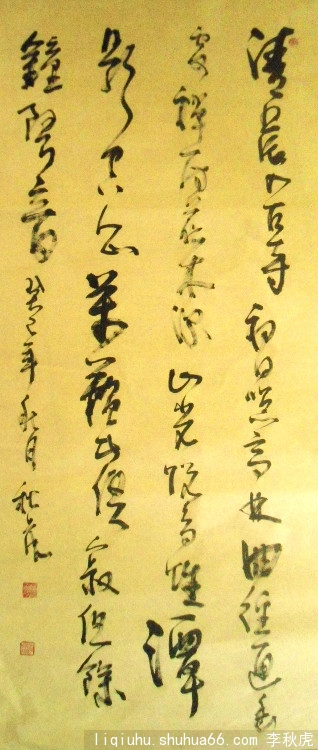 清晨入古寺初日照高林曲徑通幽
處禪房花木深山光悅鳥性潭
影空人心萬籟此俱寂但餘
鐘磬音癸巳年秋月秋虎
liqiuhu.shuhua66.com 李秋虎